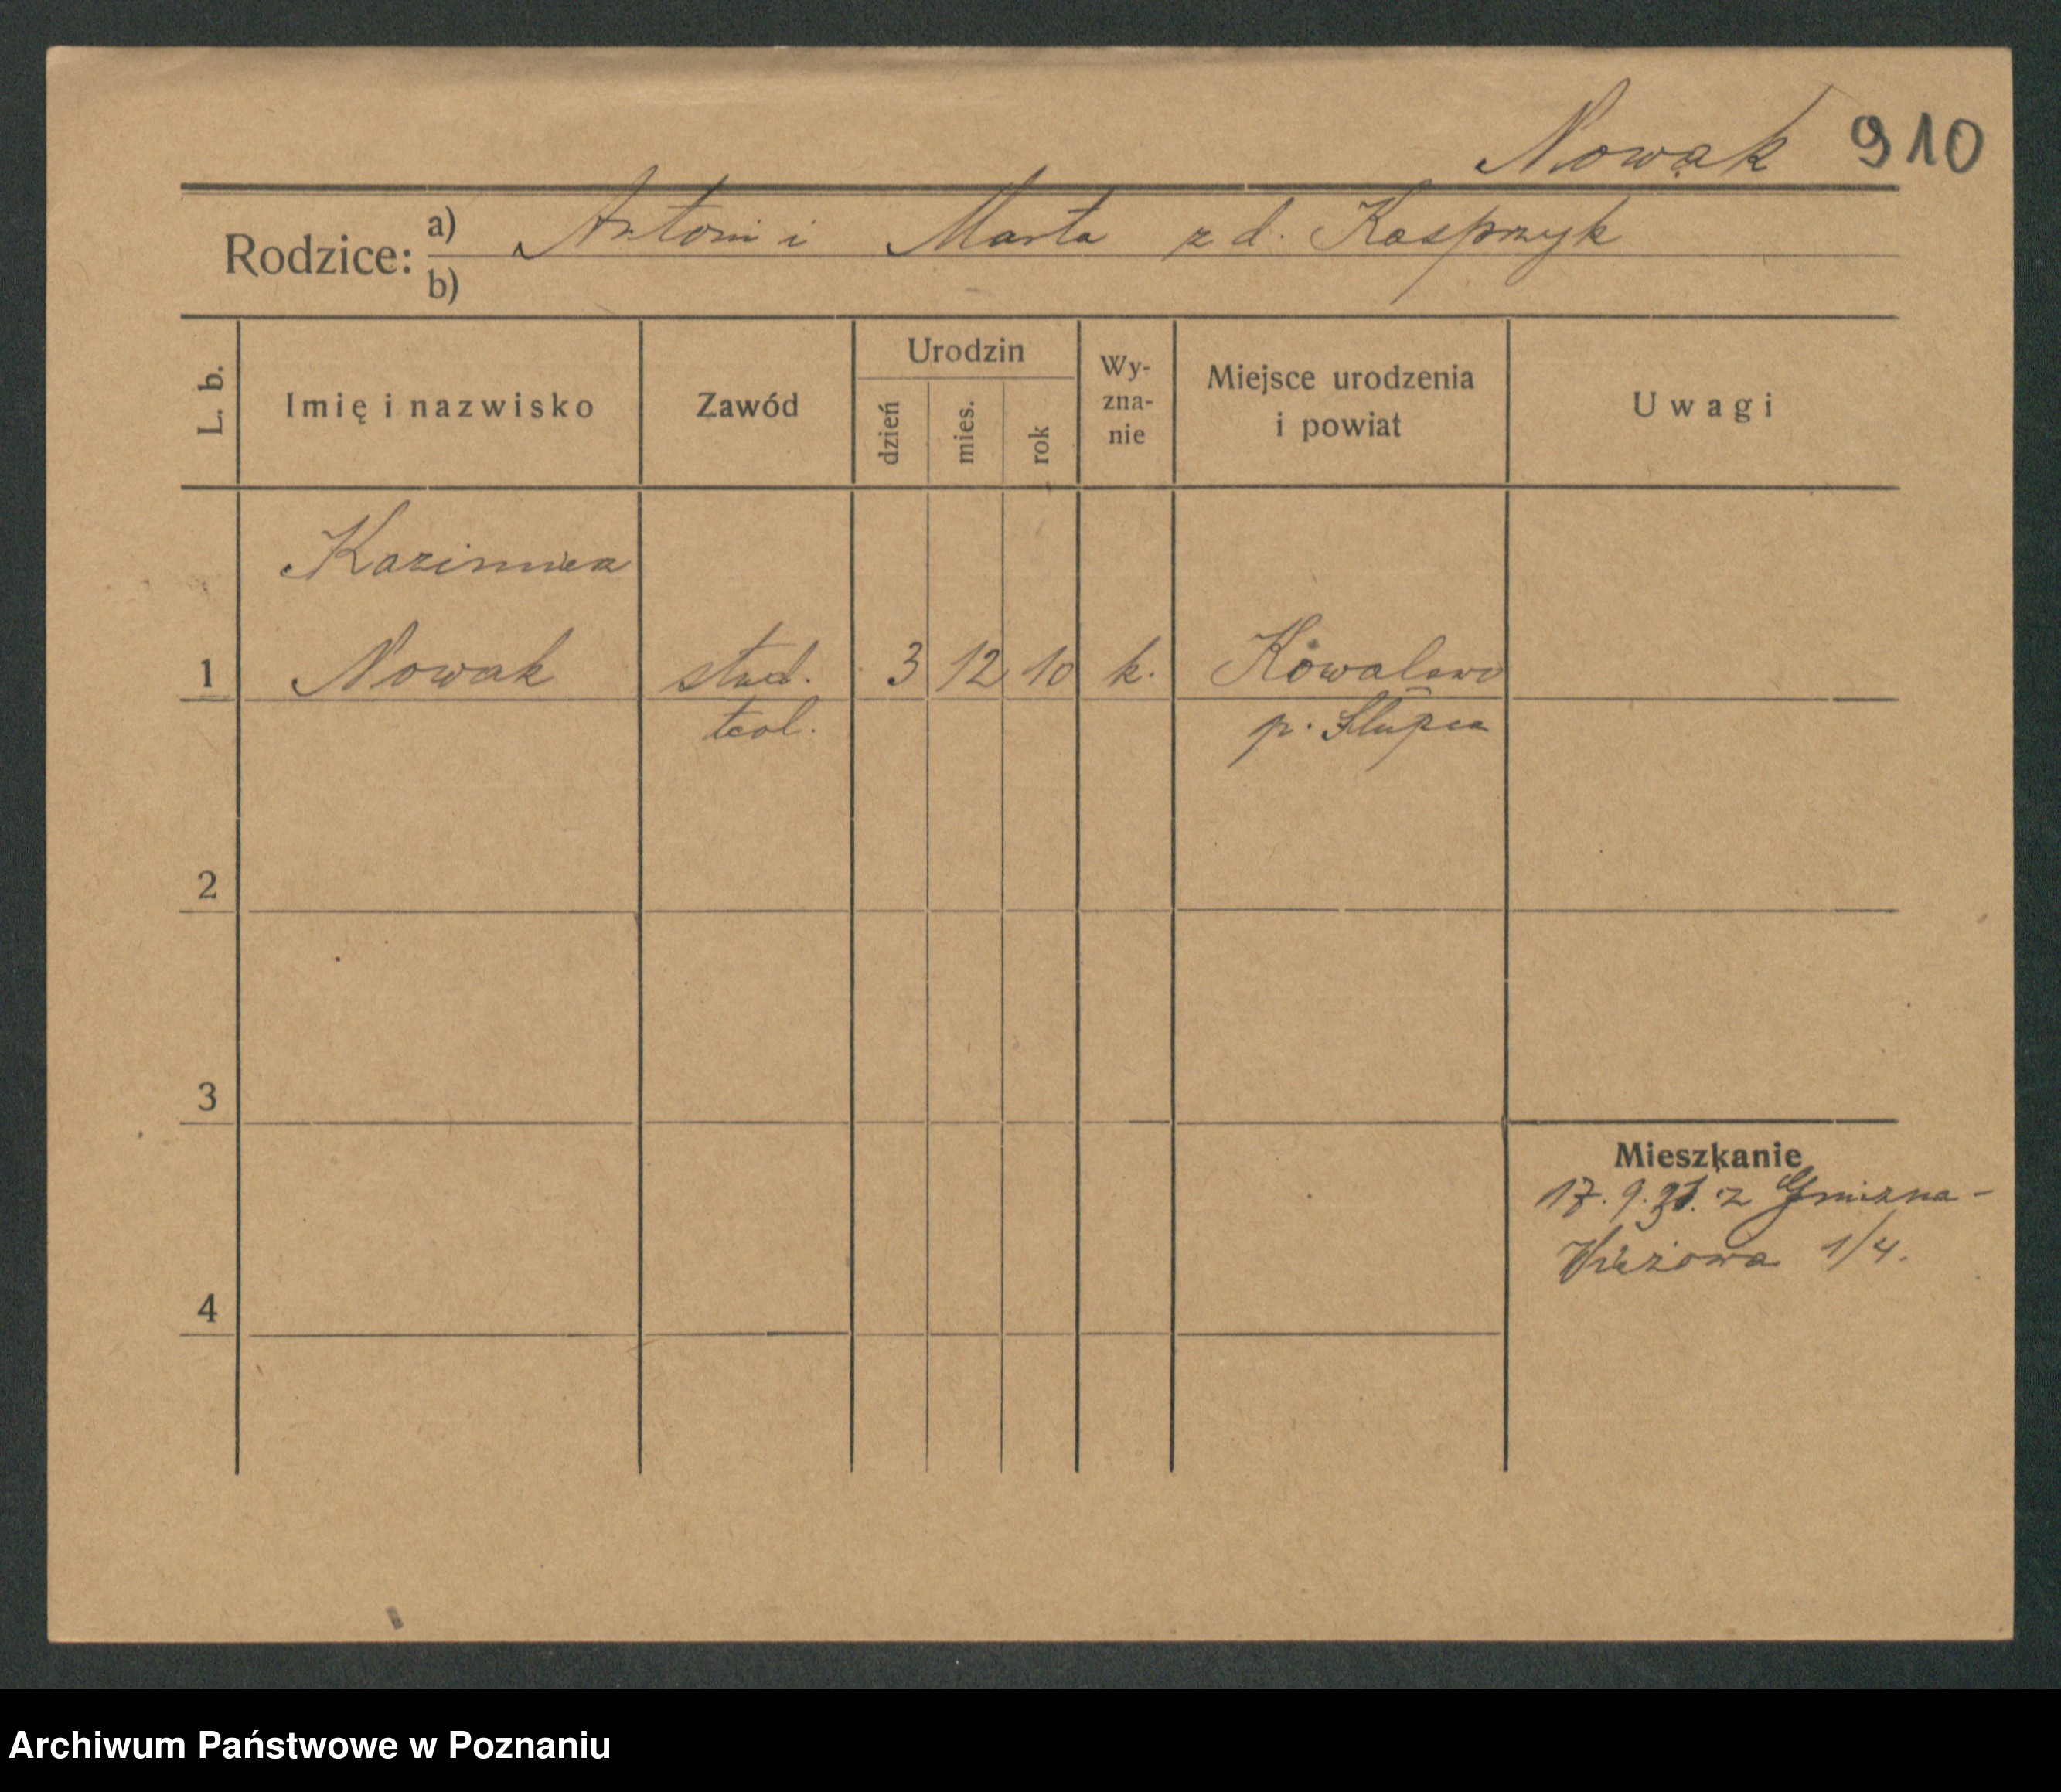 Nowak 910
Rodzice: a) Antoni i Marta z d. Kasprzyk
b)
L. b. Imię i nazwisko Zawód Urodzin dzień mies. rok Wy-zna-nie Miejsce urodzenia i powiat Uwagi
Kazimierz
1 Nowak stud. 3 12 10 k. Kowalewo
teol. p. Słupca
2
3
Mieszkanie
17. 9. 31. z Gniezna -
Wieżowa 1/4.
4
Archiwum Państwowe w Poznaniu